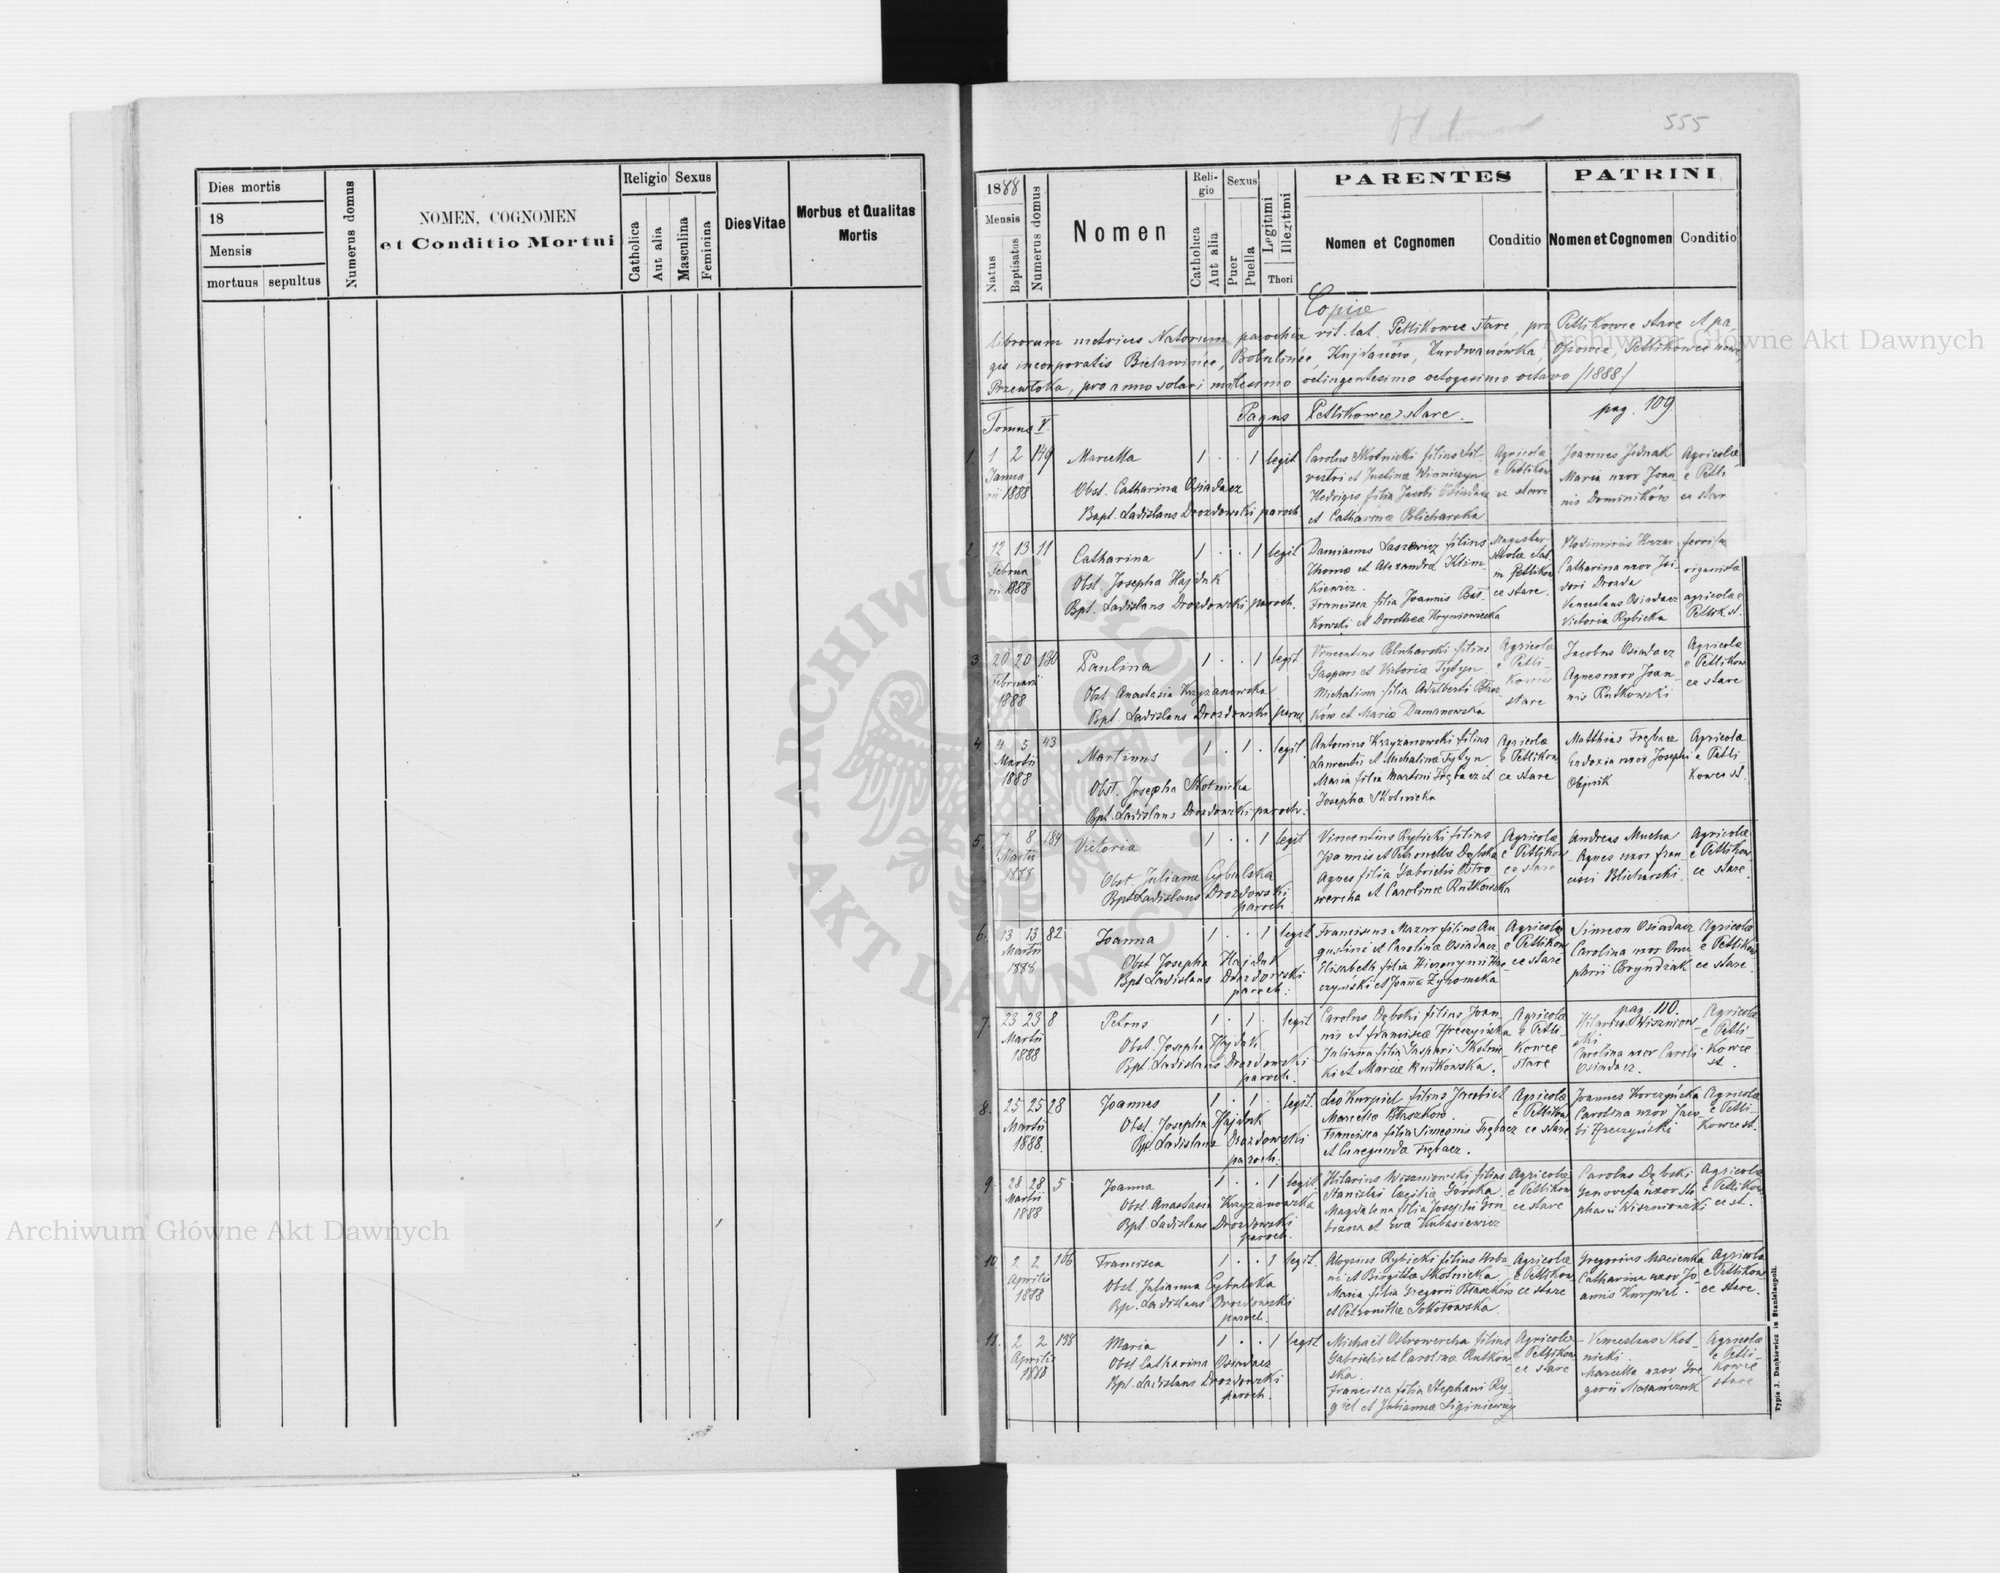 Dies mortis
18
Mensis
mortuus sepultus
Numerus domus
NOMEN, COGNOMEN
et Conditio Mortui
Religio Sexus
Catholica
Aut alia
Masculina
Feminina
Dies Vitae
Morbus et Qualitas
Mortis
555
1888
Mensis
Natus
Baptisatus
Numerus domus
Nomen
Reli-
gio
Catholica
Aut alia
Sexus
Puer
Puella
Legitimi
Illegitimi
Thori
PARENTES
Nomen et Cognomen Conditio
PATRINI
Nomen et Cognomen Conditio
Copiae
librorum metrices Natorum parochiae rit. lat. Petlikowce stare, pro Petlikowce stare et pa
gis incorporatis Bielawince, Bobulince, Kujdanów, Kurdwanówka, Osowce, Petlikowce nowe
Przewłoka, pro anno solari millesimo octingentesimo octogesimo octavo /1888/
Tomus V.
Pagus Petlikowce stare.
pag. 109
1. 1 2 149
Janua
rii 1888
Marcella
1 . . 1 legit
Obst. Catharina Osiadacz
Bapt. Ladislaus Drozdowski paroch
Carolus Skotnicki filius Sil-
vestri et Justinae Winniczyn
Hedvigis filia Jacobi Osiadacz
et Catharinae Blicharska
Agricolae
e Petlikow
ce stare
Joannes Jednak
Maria uxor Joan
nis Dominików
Agricolae
e Petli
ce star
2. 12 13 11
Februa
rii 1888
Catharina
1 . . 1 legit
Obst. Josepha Hajduk
Bpt. Ladislaus Drozdowski paroch.
Damianus Laszewicz filius
Thomae et Alexandrae Klim-
kiewicz.
Francisca filia Joannis Bał-
kowski et Dorotheae Hryniowiecka
Magister
scholae etat
in Petlikow
ce stare.
Catharina uxor Isi-
dori Drozda
Venceslaus Osiadacz
Victoria Rybicka
organistae
agricolae
Petlik. st.
3. 20 20 130
Februarii
1888
Paulina
1 . . 1 legit
Obst. Anastasia Krzyżanowska
Bpt. Ladislaus Drozdowski paroch
Vincentius Blicharski filius
Gaspari et Victoriae Tytyn
Michalina filia Adalberti Błasz-
ków et Mariae Dumanowska
Agricolae
e Petli-
kowce
stare
Jacobus Osiadacz
Agnes uxor Joan
nis Rutkowski
Agricolae
e Petlikow
ce stare
4. 4 5 43
Martii
1888
Martinus
1 . 1 . legit
Obst. Josepha Skotnicka
Bpt. Ladislaus Drozdowski paroch.
Antonius Krzyżanowski filius
Laurentii et Michalinae Tytyn
Maria filia Martini Trębacz et
Josepha Skotnicka
Agricolae
e Petlikow
ce stare
Matthias Trębacz
Eudoxia uxor Josephi
Olejnik
Agricolae
e Petli
kowce st.
5. 7 8 184
Martii
1888
Victoria
1 . . 1 legit
Obst. Julianna Cybulska
Bpt Ladislaus Drozdowski
paroch.
Vincentius Rybicki filius
Joannis et Petronellae Dębska
Agnes filia Gabrielis Ostro
wercha et Carolinae Rutkowska
Agricolae
e Petlikow
ce stare
Andreas Mucha
Agnes uxor Fran-
cisci Blicharski.
Agricolae
e Petlikow-
ce stare.
6. 13 13 82
Martii
1888
Joanna
1 . . 1 legit
Obst Josepha Hajduk
Bpt Ladislaus Drozdowski
paroch.
Franciscus Mazur filius Au
gustini et Carolinae Osiadacz
Elisabeth filia Hieronymi Hre
czyński et Joanna Żyromska
Agricolae
e Petlikow
ce stare
Simeon Osiadacz
Carolina uxor Onu
phrii Bryndzak
Agricolae
e Petlikow
ce stare.
7. 23 23 8
Martii
1888
Petrus
1 . 1 . legit
Obst. Josepha Hajduk
Bpt. Ladislaus Drozdowski
paroch.
Carolus Dębski filius Joan-
nis et Franciscae Hreczyńska
Julianna filia Gaspari Skotnic
ki et Mariae Rutkowska.
Agricolae
e Petli-
kowce
stare
pag. 110.
Hilarius Wiszniow-
ski
Carolina uxor Caroli
Osiadacz.
Agricolae
e Petli-
kowce
st.
8. 25 25 28
Martii
1888.
Joannes
1 . 1 . legit.
Obst. Josepha Hajduk
Bpt. Ladislaus Drozdowski
paroch.
Leo Kurpiel filius Jacobi et
Marcellae Błaszków.
Francisca filia Simeonis Trębacz
et Cunegunda Trębacz.
Agricolae
e Petlikow
ce stare
Joannes Horczyńska
Carolina uxor Jaco-
bi Hreczyński
Agricolae
e Petli-
kowce st.
9. 28 28 5
Martii
1888
Joanna
1 . . 1 legit
Obst. Anastasia Krzyżanowska
Bpt. Ladislaus Drozdowski
paroch.
Hilarius Wiszniowski filius
Stanislai Caeciliae Górska.
Magdalena filia Josephi Gon
et Eva Kubasiewicz
Agricolae
e Petlikow
ce stare
Carolus Dębski
Genovefa uxor Ste
phani Wiszniowski
Agricolae
e Petlikow
ce st.
10 2 2 106
Aprilis
1888
Francisca
1 . . 1 legit.
Obst. Julianna Cybulska
Bp. Ladislaus Drozdowski
paroch.
Aloysius Rybicki filius Urba
ni et Birgittae Skotnicka.
Maria filia Gregorii Błaszków
et Petronillae Sokołowska
Agricolae
e Petlikow
ce stare
Gregorius Macienka
Catharina uxor Jo-
annis Kurpiel.
Agricolae
e Petlikow
ce stare.
11. 2 2 198
Aprilis
1888
Maria
1 . . 1 legit
Obst Catharina Osiadacz
Bpt. Ladislaus Drozdowski
paroch.
Michael Ostrowercha filius
Gabrielis et Carolinae Rutkow
ska.
Francisca filia Stephani Ry-
giel et Juliannae
Agricolae
e Petlikow
ce stare
Venceslaus Skot-
nicki
Marcella uxor Gre
gorii
Agricolae
e Petli-
kowce
stare
Typis J. Dankiewicz in Stanislaopoli.
Archiwum Główne Akt Dawnych
Archiwum Główne Akt Dawnych
ARCHIWUM GŁÓWNE AKT DAWNYCH